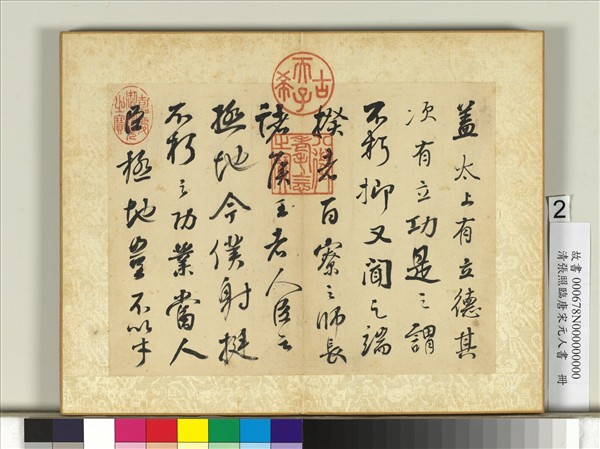 蓋太上有立德其
次有立功是之謂
不朽抑又聞之端
揆者百寮之師長
諸侯王者人臣之
極地今僕射挺
不朽之功業當人
臣極地豈不以才
古希天子
2
故書 000678N000000000
清張照臨唐宋元人書 冊